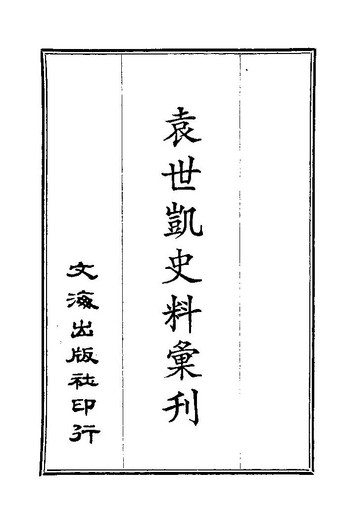 袁世凱史料彙刊
文海出版社印行